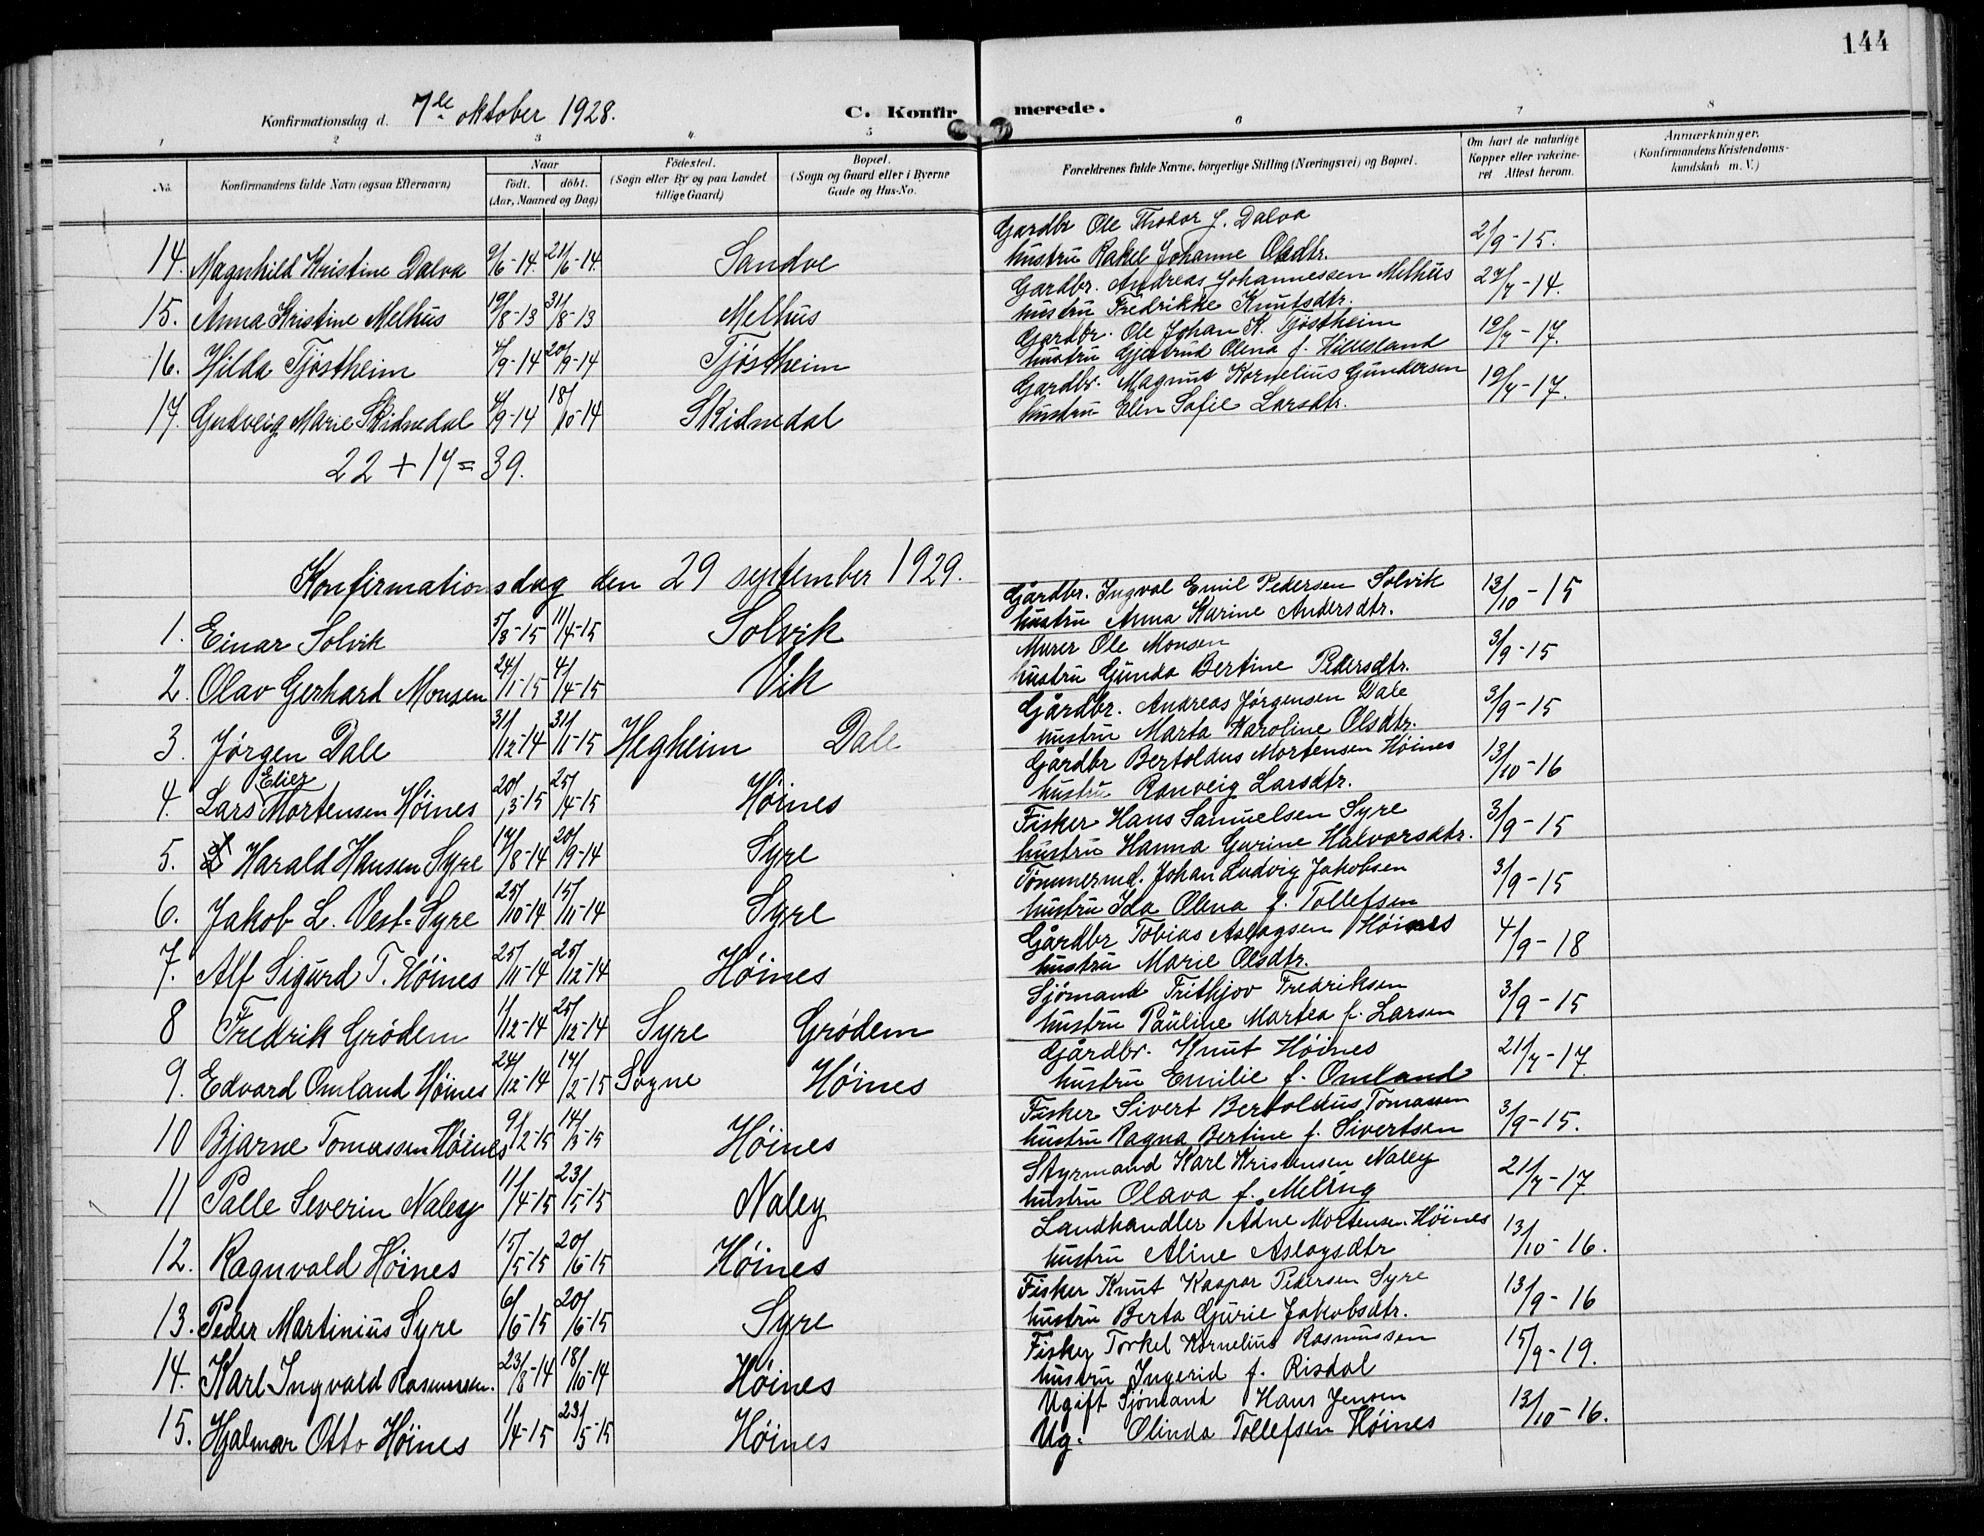 144
Konfirmationsdag d. 7de oktober 1928. C. Konfirmerede.
1 2 3 4 5 6 7 8
No. Konfirmandens fulde Navn (ogsaa Efternavn) Naar födt. döbt. (Aar, Maaned og Dag) Födested. (Sogn eller By og paa Landet tillige Gaard) Bopæl. (Sogn og Gaard eller i Byerne Gade og Hus-No. Forældrenes fulde Navne, borgerlige Stilling (Næringsvei) og Bopæl. Om havt de naturlige Kopper eller vakcineret Attest herom. Anmærkninger. (Konfirmandens Kristendomskundskab m. V.)
Gardbr Ole Thodor J. Dalva
14. Magnhild Kristine Dalva 9/6-14. 21/6-14. Sandve hustru Rakel Johanne Olsdtr. 2/9-15.
Gardbr. Andreas Johannessen Melhus
15. Anna Kristine Melhus 19/8-13 31/8-13 Melhus hustru Fredrikke Knutsdtr. 27/7-14.
Gardbr. Ole Johan K. Tjøstheim
16. Hilda Tjøstheim 4/9-14 20/9-14 Tjøstheim hustru Gjertrud Olena f. Hillesland 19/7-17.
Gardbr. Magnus Kornelius Gundersen
17. Gudveig Marie Skidnedal 4/9-14 18/10-14 Skidnedal hustru Elen Sofie Larsdtr. 19/7-17.
22 + 17 = 39.
Konfirmationsdag den 29 september 1929.
Gårdbr. Ingval Emil Pedersen Solvik
1. Einar Solvik 5/3-15 11/4-15 Solvik hustru Anna Karine Andersdtr. 13/10-15
Murer Ole Monsen
2. Olav Gerhard Monsen 24/1-15 4/4-15 Vik hustru Gunda Bertine Pedersdtr. 3/9-15
Gårdbr. Andreas Jørgensen Dale
3. Jørgen Dale 31/12-14 31/1-15 Hegheim Dale hustru Marta Karoline Olsdtr. 3/9-15
Gårdbr Bertoldus Mortensen Høines
4. Lars Elier Mortensen Høines 20/3-15 25/4-15 Høines hustru Ranveig Larsdtr. 13/10-16
Fisker Hans Samuelsen Syre
5. Harald Hansen Syre 17/8-14 20/9-14 Syre hustru Hanna Gurine Halvorsdtr. 3/9-15
Tømmermd. Johan Ludvig Jakobsen
6. Jakob L. Vest-Syre 25/10-14 15/11-14 Syre hustru Ida Olena f. Tollefsen 3/9-15
Gårdbr Tobias Aslagsen Høines
7. Alf Sigurd T. Høines 25/11-14 25/12-14 Høines hustru Marie Olsdtr. 4/9-18
Sjömand Frithjov Fredriksen
8 Fredrik Grödem 1/12-14 25/12-14 Syre Grödem hustru Pauline Martea f. Larsen 3/9-15
Gårdbr. Knut Høines
9. Edvard Omland Høines 24/12-14 14/2-15 Sogne Høines hustru Emilie f. Omland 21/7-17
Fisker Sivert Bertoldus Tomassen
10 Bjarne Tomassen Høines 9/2-15 14/3-15 Høines hustru Ragna Bertine f. Sivertsen 3/9-15.
Styrmand Karl Kristensen Naley
11 Palle Severin Naley 11/4-15 23/5-15 Naley hustru Olava f. Meling 21/7-17
Landhandler Adne Mortensen Høines
12. Ragnvald Høines 15/5-15 20/6-15 Høines hustru Aline Aslagsdtr 13/10-16.
Fisker Knut Kaspar Pedersen Syre
13. Peder Martinius Syre 6/6-15 20/6-15 Syre hustru Berta Gurie Jakobsdtr. 13/9-16
Fisker Torkel Kornelius Rasmussen
14. Karl Ingvald Rasmussen. 23/8-14 18/10-14 Høines hustru Ingerid f. Risdal 15/9-19.
Ugift Sjömand Hans Jensen
15. Hjalmar Otto Høines 1/4-15 23/5-15 Høines Ug. Olinda Tollefsen Høines 13/10-16.